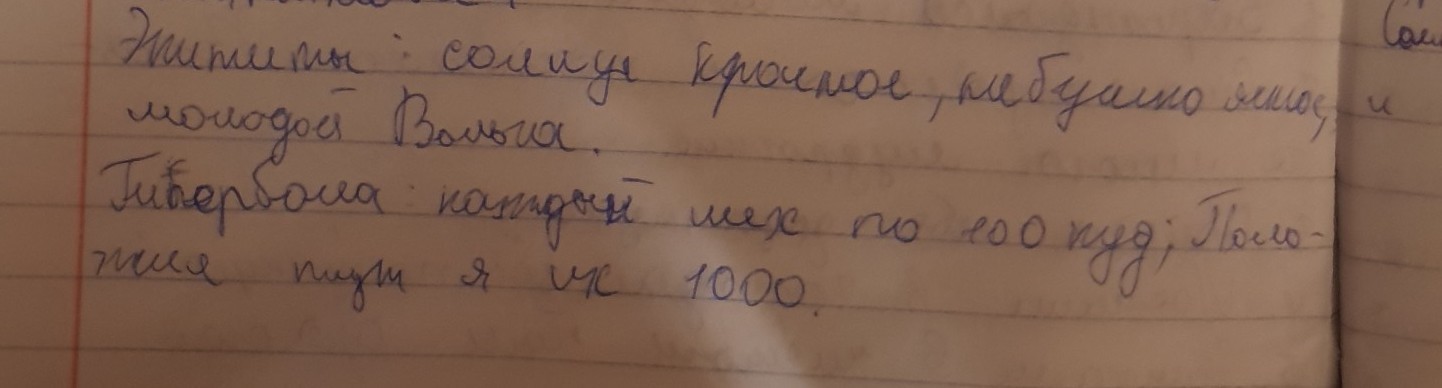 Эпитеты: солнце красное, небушко ясное, и
молодой Вольга.
Гипербола: каждый мех по 100 пуд; Поло-
жил их 1000.